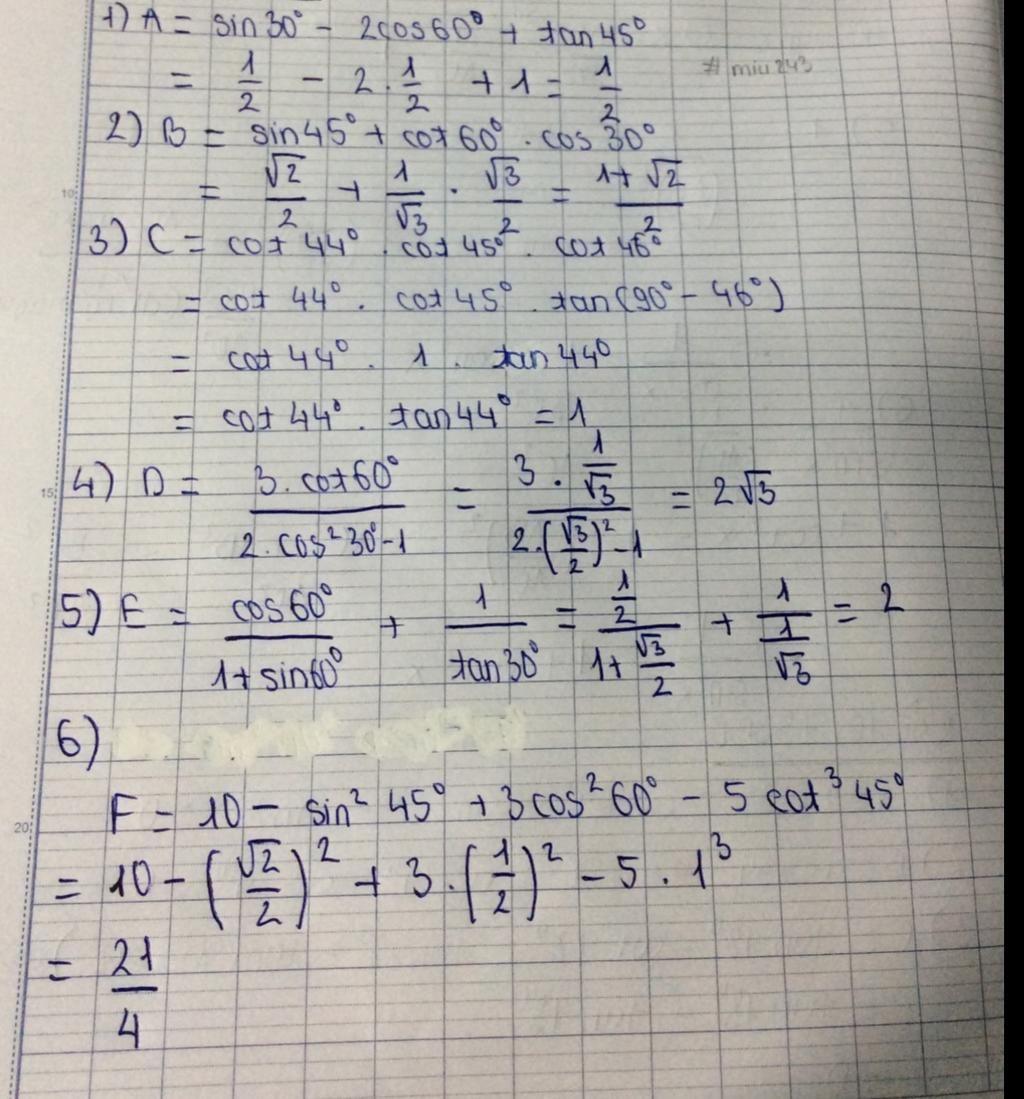 1) A = sin30° - 2cos60° + tan45°
= 1/2 - 2 . 1/2 + 1 = 1/2
# miu243
2) B = sin45° + cot60° . cos30°
= √2/2 + 1/√3 . √3/2 = (1+√2)/2
3) C = cot44° . cot45° . cot46°
= cot44° . cot45° . tan(90° - 46°)
= cot44° . 1 . tan44°
= cot44° . tan44° = 1
4) D = (3.cot60°)/(2.cos²30°-1) = (3 . 1/√3)/(2.(√3/2)²-1) = 2√3
5) E = cos60°/(1+sin60°) + 1/tan30° = (1/2)/(1+√3/2) + 1/(1/√3) = 2
6)
F = 10 - sin²45° + 3cos²60° - 5cot³45°
= 10 - (√2/2)² + 3.(1/2)² - 5 . 1³
= 21/4
10
15
20